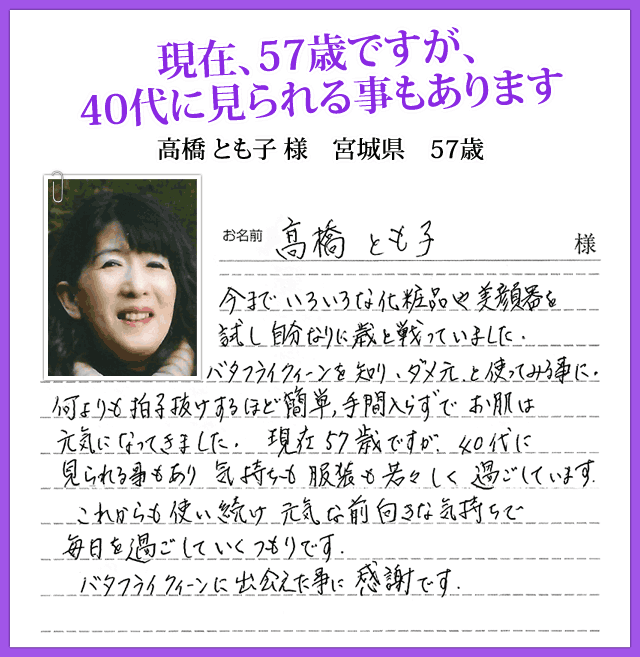 現在、57歳ですが、
40代に見られる事もあります
高橋とも子様　宮城県　57歳
お名前 高橋 とも子 様
今まで いろいろな化粧品や美顔器を
試し自分なりに歳と戦っていました.
バタフライクィーンを知り、ダメ元、と使ってみる事に.
何よりも拍子抜けするほど簡単,手間入らずで お肌は
元気になってきました. 現在57歳ですが、40代に
見られる事もあり 気持ちも服装も若々しく過ごしています.
これからも使い続け 元気な前向きな気持ちで
毎日を過ごしていくつもりです.
バタフライクィーンに出会えた事に感謝です.